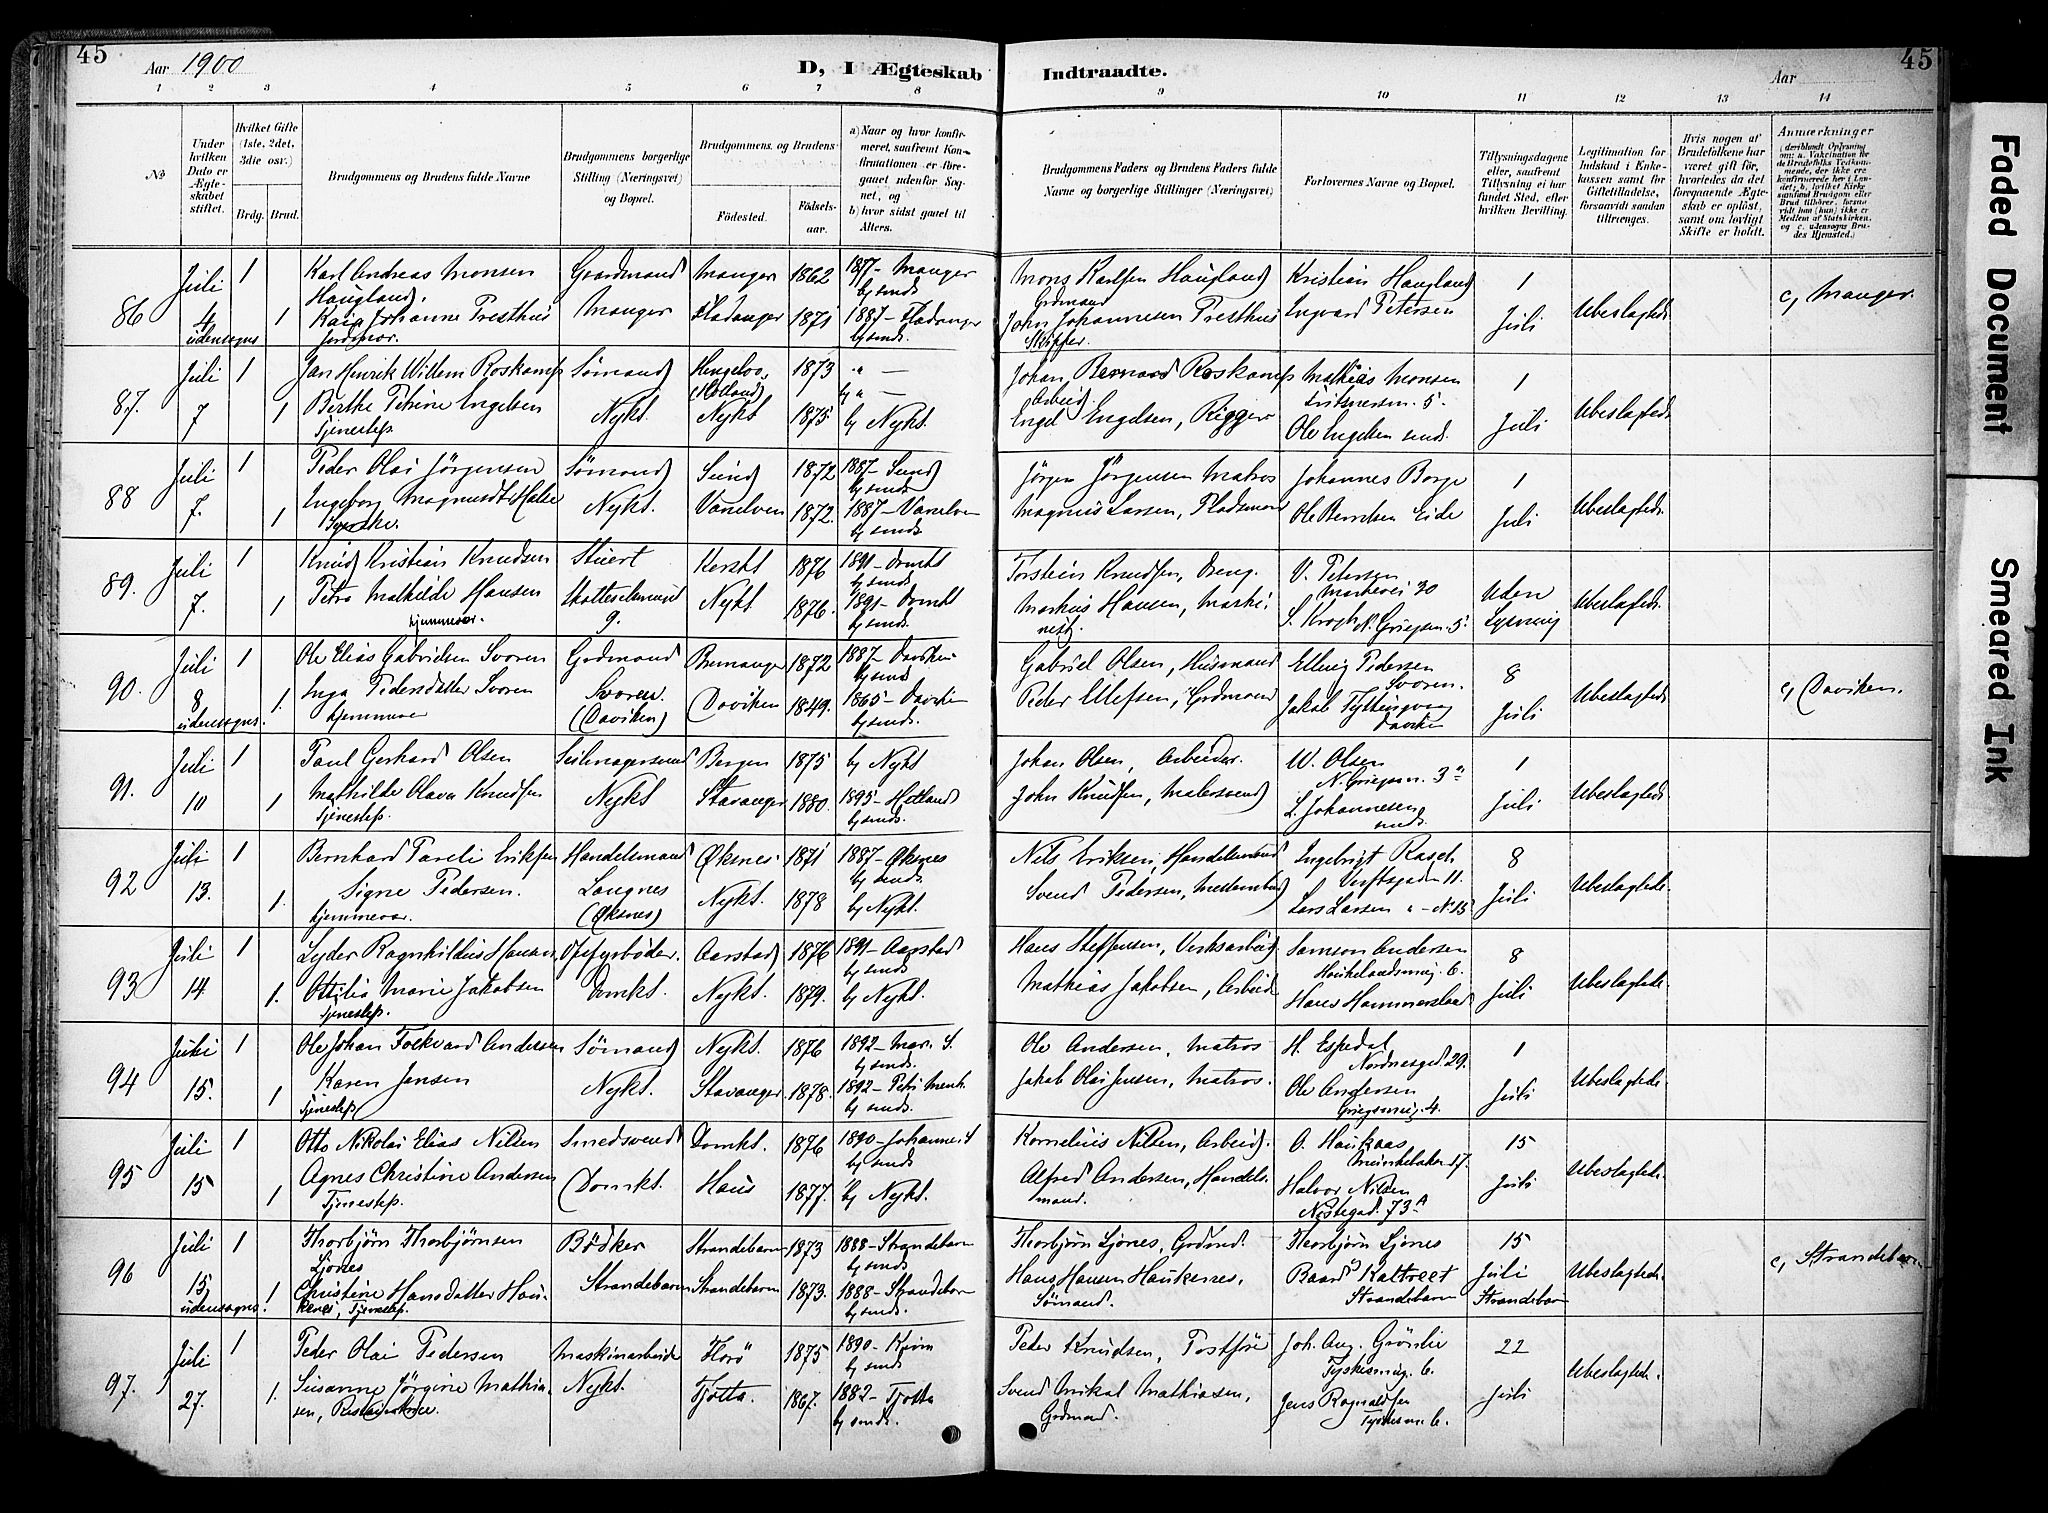 45
Aar 1900
D, I Ægteskab
Indtraadte.
Aar
45
1 2 3 4 5 6 7 8 9 10 11 12 13 14
No
Under hvilken Dato er Ægteskabet stiftet.
Hvilket Gifte (1ste, 2det, 3die osv.)
Brdg. Brud.
Brudgommens og Brudens fulde Navne
Brudgommens borgerlige Stilling (Næringsvei) og Bopæl.
Brudgommens og Brudens
Fødested.
Fødselsaar.
a) Naar og hvor konfirmeret, saafremt Konfirmationen er foregaaet udenfor Sognet, og
b) hvor sidst gaaet til Alters.
Brudgommens Faders og Brudens Faders fulde Navne og borgerlige Stillinger (Næringsvei)
Forlovernes Navne og Bopæl.
Tillysningsdagene eller, saafremt Tillysning ei har fundet Sted, efter hvilken Bevilling.
Legitimation for Indskud i Enkekassen samt for Giftetilladelse, forsaavidt saadan tiltrænges.
Hvis nogen af Brudefolkene har været gift før, hvorledes da det foregaaende Ægteskab er opløst, samt om lovligt Skifte er holdt.
Anmærkninger
86 Juli 4 udensogns 1 1
Karl Andreas Monsen Haugland.
Kaia Johanne Presthus
Jordmor.
Gaardmand Manger
Manger 1862 1877 - Manger b) smds.
Fladanger 1871 1887 - Fladanger b) smds.
Mons Karlsen Haugland Grdmand
John Johannesen Presthus Skipper.
Kristian Haugland
Ingvard Petersen
1 Juli
Ubeslægtede
c, Manger.
87. Juli 7 1 1
Jan Henrik Willem Roskamp
Berthe Petrine Engelsen
Tjenestep.
Sømand Nykt.
Hengeloo, (Holland) 1873
Nykt 1875 b) Nykt.
Johan Bernard Roskamp Arbeid.
Engel Engelsen, Rigger
Mathias Monsen
Ole Engelsen smds.
1 Juli
Ubeslægtede
88 Juli 7. 1 1
Peder Olai Jörgensen
Sømand Nykt.
Sund 1872 1887 - Sund b) smds.
Vanelven 1872. 1887 - Vanelven b) smds.
Jörgen Jörgensen Matros
Magnus Larsen, Pladsmand
Johannes Borge
Ole Berntsen Eide
1 Juli
Ubeslægtede
89. Juli 7. 1 1
Knud Kristian Knudsen
Petra Mathilde Hansen
hjemmevær.
Stuert
9.
1876 1891 - Domkt b) smds.
Nykt 1876. 1891 - Domkt b) smds.
Torstein Knudsen, Dreng.
Markus Hansen, Maskinist.
V. Petersen
Markevei 30
S. Krogh N. Griegsm. 5.
Uden Lysning
Ubeslægtede.
90. Juli 8 udensogns. 1 1.
Ole Elias Gabrielsen Svoren
Inga Pedersdatter Svoren
hjemmevær
Grdmand Svoren (Daviken)
Bremanger 1872 1887 - Daviken b) smds
Daviken 1849. 1865 - Daviken b) smds.
Gabriel Olsen, Husmand
Peder Ellefsen, Grdmand
Elling Pedersen Svoren.
Jakob
Daviken
8 Juli
Ubeslægtede
c, Daviken.
91. Juli 10 1 1
Paul Gerhard Olsen
Mathilde Olava Knudsen
Tjenestep.
Seilmagersvend Nykt
Bergen 1875 b) Nykt
Stavanger 1880. 1895 - Hetland b) smds.
Johan Olsen, Arbeider.
John Knudsen, Malersvend
W. Olsen
N. Griegsm. 3a
L. Johannesen smds.
1 Juli
Ubeslægtede
92 Juli 13. 1 1.
Bernhard Pareli Eriksen
Signe Pedersen.
hjemmevær.
Handelsmand Langnes (Øksnes)
Øksnes 1871 1887 - Øksnes b) smds.
Nykt. 1878 b) Nykt.
Nils Eriksen, Handelsmand
Svend Pedersen,
Ingebrigt Rasch
Verftsgaden 11.
Lars Larsen " - N. 15
8 Juli
Ubeslægtede.
93 Juli 14 1 1.
Lyder Ragnhildus Hansen
Ottilia Marie Jakobsen
Tjenestep.
Ofyrbøder. Domkt.
Aarstad 1876 1891 - Aarstad b) smds
Nykt. 1879. b) Nykt.
Hans Steffensen, Verksarbeid.
Mathias Jakobsen, Arbeid.
Samson Andersen
Haukelandsvei. 6.
Hans Hammersland
8 Juli
Ubeslægtede.
94 Juli 15. 1 1
Ole Johan Folkvard Andersen
Karen Jensen
Tjenestep.
Sømand Nykt.
Nykt. 1876 1892 - Mar. S. b) smds.
Stavanger 1878. 1892 - Petri Menh. b) smds.
Ole Andersen, Matros
Jakob Olai Jensen, Matros.
H. Espedal
Nordnesgd. 29.
Ole Andersen
4.
1 Juli
Ubeslægtede.
95 Juli 15 1 1
Otto Nikolai Elias Nilsen
Agnes Christine Andersen
Tjenestep.
Smedsvend Domkt.
Domkt. 1876 1890 - Johannes S b) smds
Haus 1877. b) Nykt.
Kornelius Nilsen, Arbeid.
Alfred Andersen, Handelsmand.
A. Haukaas
17.
Halvor Nilsen
Nøstegad. 73A
15 Juli
Ubeslægtede.
96 Juli 15. udensogns. 1 1
Thorbjørn Thorbjørnsen Ljones
Christine Hansdatter Haukenes, Tjenestep.
Bödker Strandebarm
Strandebarm 1873 1888 - Strandebarm b) smds.
Strandebarm 1873. 1888 - Strandebarm b) smds.
Thorbjørn Ljones, Grdmd.
Hans Hansen Haukenes, Sømand.
Thorbjørn Ljones
Baard Kaltveet
Strandebarm
15 Juli Strandebarm
Ubeslægtede.
c, Strandebarm
97. Juli 27. 1 1.
Peder Olai Pedersen
Susanne Jörgine Mathiasen,
Maskinarbeider Nykt.
Florø 1875 1890 - Kinn b) smds
Tjøtta. 1867. 1882 - Tjøtta b) smds.
Peder Knudsen, Postfører
Svend Mikal Mathiasen, Grdmand.
Joh. Aug. Grönlie
Tyskesmug. 6.
Jens Ragnaldsen
Tyskesm. 6.
22 Juli
Ubeslægtede.
Faded Document
Smeared Ink